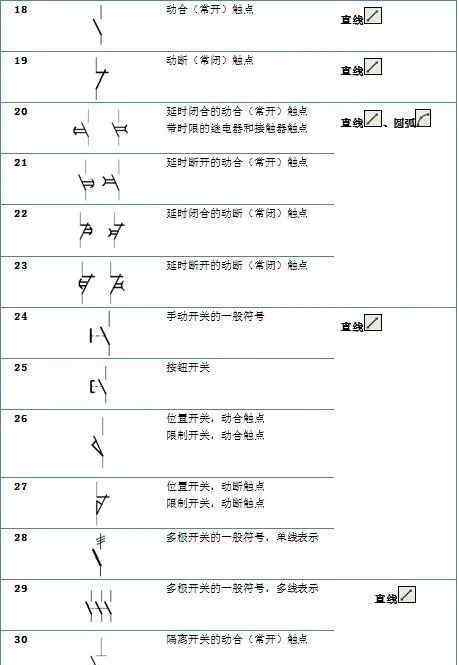 18 动合（常开）触点 直线
19 动断（常闭）触点 直线
20 延时闭合的动合（常开）触点 直线、圆弧
带时限的继电器和接触器触点
21 延时断开的动合（常开）触点
22 延时闭合的动断（常闭）触点
23 延时断开的动断（常闭）触点
24 手动开关的一般符号 直线
25 按钮开关
26 位置开关，动合触点
限制开关，动合触点
27 位置开关，动断触点
限制开关，动断触点
28 多极开关的一般符号，单线表示
29 多极开关的一般符号，多线表示 直线
30 隔离开关的动合（常开）触点